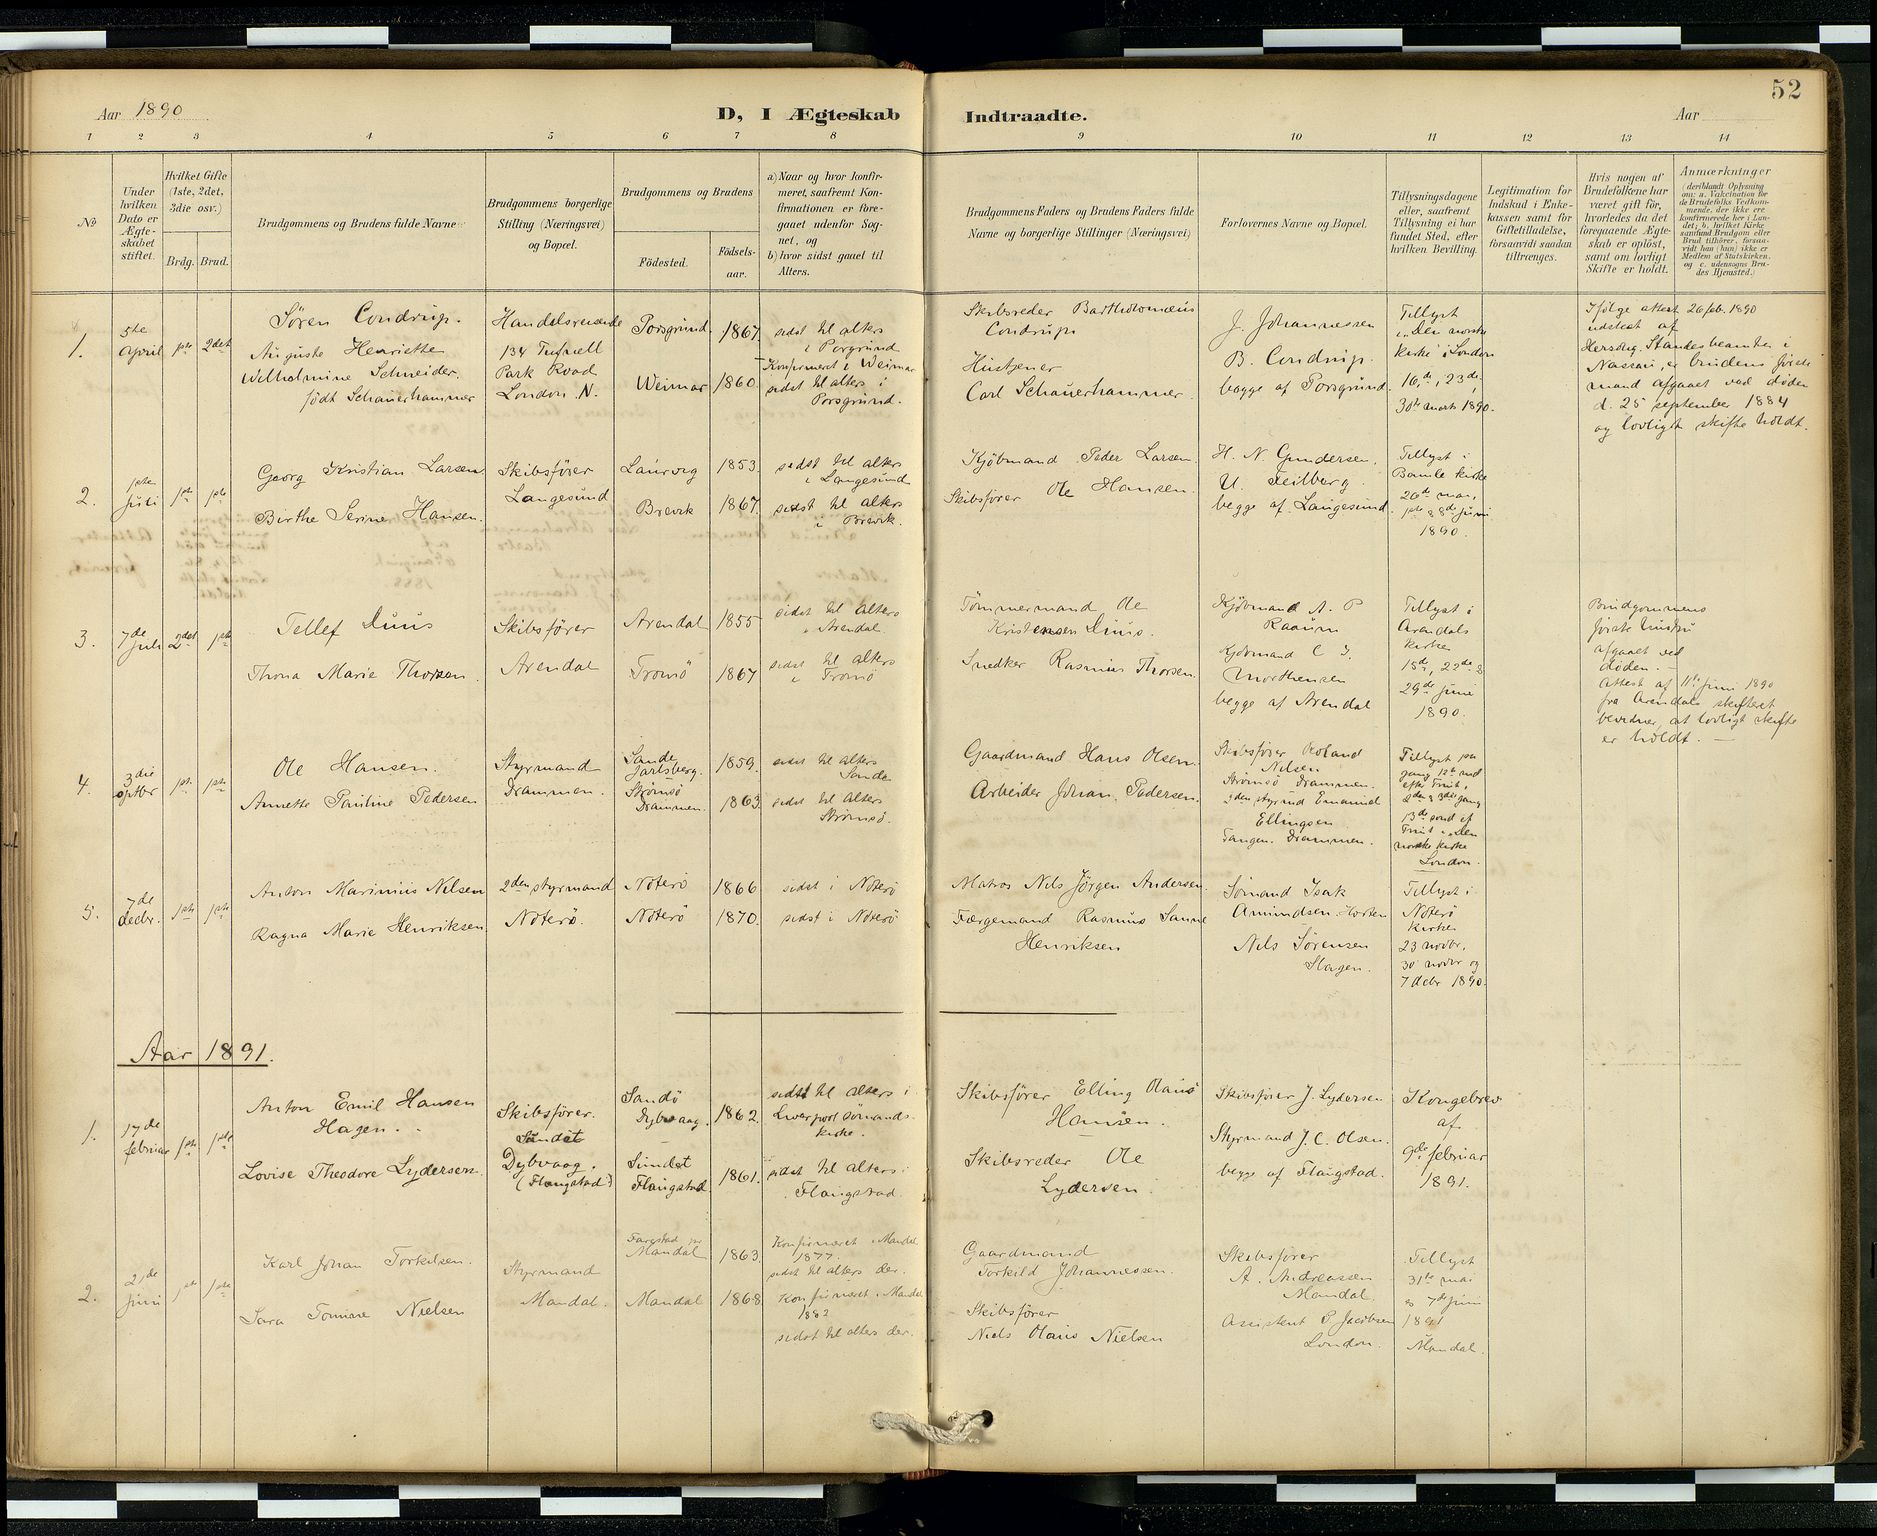 52
Aar 1890
D, I Ægteskab Indtraadte.
Aar
1 2 3 4 5 6 7 8 9 10 11 12 13 14
No
Under hvilken Dato er Ægteskabet stiftet.
Hvilket Gifte (1ste, 2det, 3die osv.)
Brdg. Brud.
Brudgommens og Brudens fulde Navne
Brudgommens borgerlige Stilling (Næringsvei) og Bopæl.
Brudgommens og Brudens
Fødested.
Fødselsaar.
a) Naar og hvor konfirmeret, saafremt Konfirmationen er foregaaet udenfor Sognet, og
b) hvor sidst gaaet til Alters.
Brudgommens Faders og Brudens Faders fulde Navne og borgerlige Stillinger (Næringsvei)
Forlovernes Navne og Bopæl.
Tillysningsdagene eller, saafremt Tillysning ei har fundet Sted, efter hvilken Bevilling.
Legitimation for Indskud i Enkekassen samt for Giftetilladelse, forsaavidt saadan tiltrænges.
Hvis nogen af Brudefolkene har været gift før, hvorledes da det foregaaende Ægteskab er opløst, samt om lovligt Skifte er holdt.
Anmærkninger
(deriblandt Oplysning om: a. Vakcination for de Brudefolks Vedkommende, der ikke ere konfirmerede her i Landet; b. hvilket Kirkesamfund Brudgom eller Brud tilhører, forsaavidt han (hun) ikke er Medlem af Statskirken, og c. udensogns Brudes Hjemsted.)
1.
5te april
1ste 2det
Søren Condrup.
Auguste Henriette
Wilhelmine Schneider.
født Schauerhammer
Handelsreisende
134 Tufnell
Park Road
London. N.
Porsgrund. 1867.
Weimar 1860.
sidst til alters
i Porsgrund
Konfirmeret i Weimar
sidst til alters i
Porsgrund.
Skibsreder Bartholomæus
Condrup
Hustjener
Carl Schauerhammer.
J. Johannessen
B. Condrup.
begge af Porsgrund.
Tillyst
i "Den norske
kirke" i London
16de, 23de,
30te marts 1890.
Ifølge attest 26 feb. 1890
udstedt af
Herzog. Standesbeamter i
Nassau, er brudens første
mand afgaaet ved døden
d. 25 september 1884
og lovligt skifte holdt.
2.
1ste juli
1ste 1ste
Georg Kristian Larsen
Birthe Serine Hansen.
Skibsfører
Langesund
Laurvig 1853.
Brevik 1867.
sidst til alters
i Langesund
sidst til alters
i Brevik.
Kjøbmand Peder Larsen.
Skibsfører Ole Hansen.
H. N. Gundersen,
U. Feilberg.
begge af Langesund.
Tillyst i
Bamle kirke
26de mai,
1ste & 8de juni
1890.
3.
7de juli
2det 1ste
Tellef Duus
Thona Marie Thorsen.
Skibsfører
Arendal
Arendal 1855
Tromø 1867
sidst til alters
i Arendal
sidst til alters
i Tromø
Tømmermand Ole
Kristensen Duus.
Snedker Rasmus Thorsen.
Kjøbmand A. P
Raaum
Kjøbmand C. I.
Morthensen
begge af Arendal
Tillyst i
Arendals
kirke
15de, 22de &
29de juni
1890.
Brudgommens
første hustru
afgaaet ved
døden. —
Attest af 11te juni 1890
fra Arendals skifteret
bevidner, at lovligt skifte
er holdt. —
4.
3die sptbr
1ste 1ste
Ole Hansen.
Annette Pauline Pedersen
Styrmand
Drammen.
Sande
Jarlsberg. 1859.
Strømsø
Drammen. 1863.
sidst til alters
Sande
sidst til alters
Strømsø.
Gaardmand Hans Olsen.
Arbeider Johan Pedersen.
Skibsfører Roland
Nilsen
Strømsø Drammen.
2den styrmd Emanuel
Ellingsen
Tangen. Drammen.
Tillyst 1ste
gang 12te snd
efter Trinit.,
2den & 3die gang
13de sond. ef
Trinit i "Den
norske kirke
London.
5.
7de decbr.
1ste 1ste
Anton Marinius Nilsen
Ragna Marie Henriksen.
2den styrmand
Nøterø.
Nøterø 1866
Nøterø 1870.
sidst i Nøterø
sidst i Nøterø
Matros Nils Jørgen Andersen.
Færgemand Rasmus Sanne
Henriksen
Sømand Isak
Amundsen. Horten
Nils Sørensen
Slagen.
Tillyst i
Nøterø
Kirke
23 novbr,
30 novbr og
7 decbr 1890.
Aar 1891.
1.
17de februar
1ste 1ste
Anton Emil Hansen
Hagen.
Lovise Theodore Lydersen.
Skibsfører.
Sundet
Dybvaag.
(Flaugstad)
Sandø
Dybvaag. 1862.
Sundet
Flaugstad. 1861.
sidst til alters i
Liverpool sømands-
kirke.
sidst til alters i
Flaugstad.
Skibsfører Elling Olaus
Hansen.
Skibsreder Ole
Lydersen.
Skibsfører J. Lydersen
Styrmand J. C. Olsen.
begge af Flaugstad.
Kongebrev
af
9de februar
1891.
2.
21de juni
1ste 1ste
Karl Johan Torkilsen.
Sara Tomine Nielsen
Styrmand
Mandal.
Mandal 1863.
Mandal 1868.
Konfirmeret i Mandal
1877.
sidst til alters der.
Konfirmeret i Mandal
1882
sidst til alters der.
Gaardmand
Torkild Johannessen.
Skibsfører
Niels Olaus Nielsen
Skibsfører
A. Andreassen
Mandal.
Assistent P. Jacobsen
London.
Tillyst
31te mai
& 7de juni
1891
Mandal.